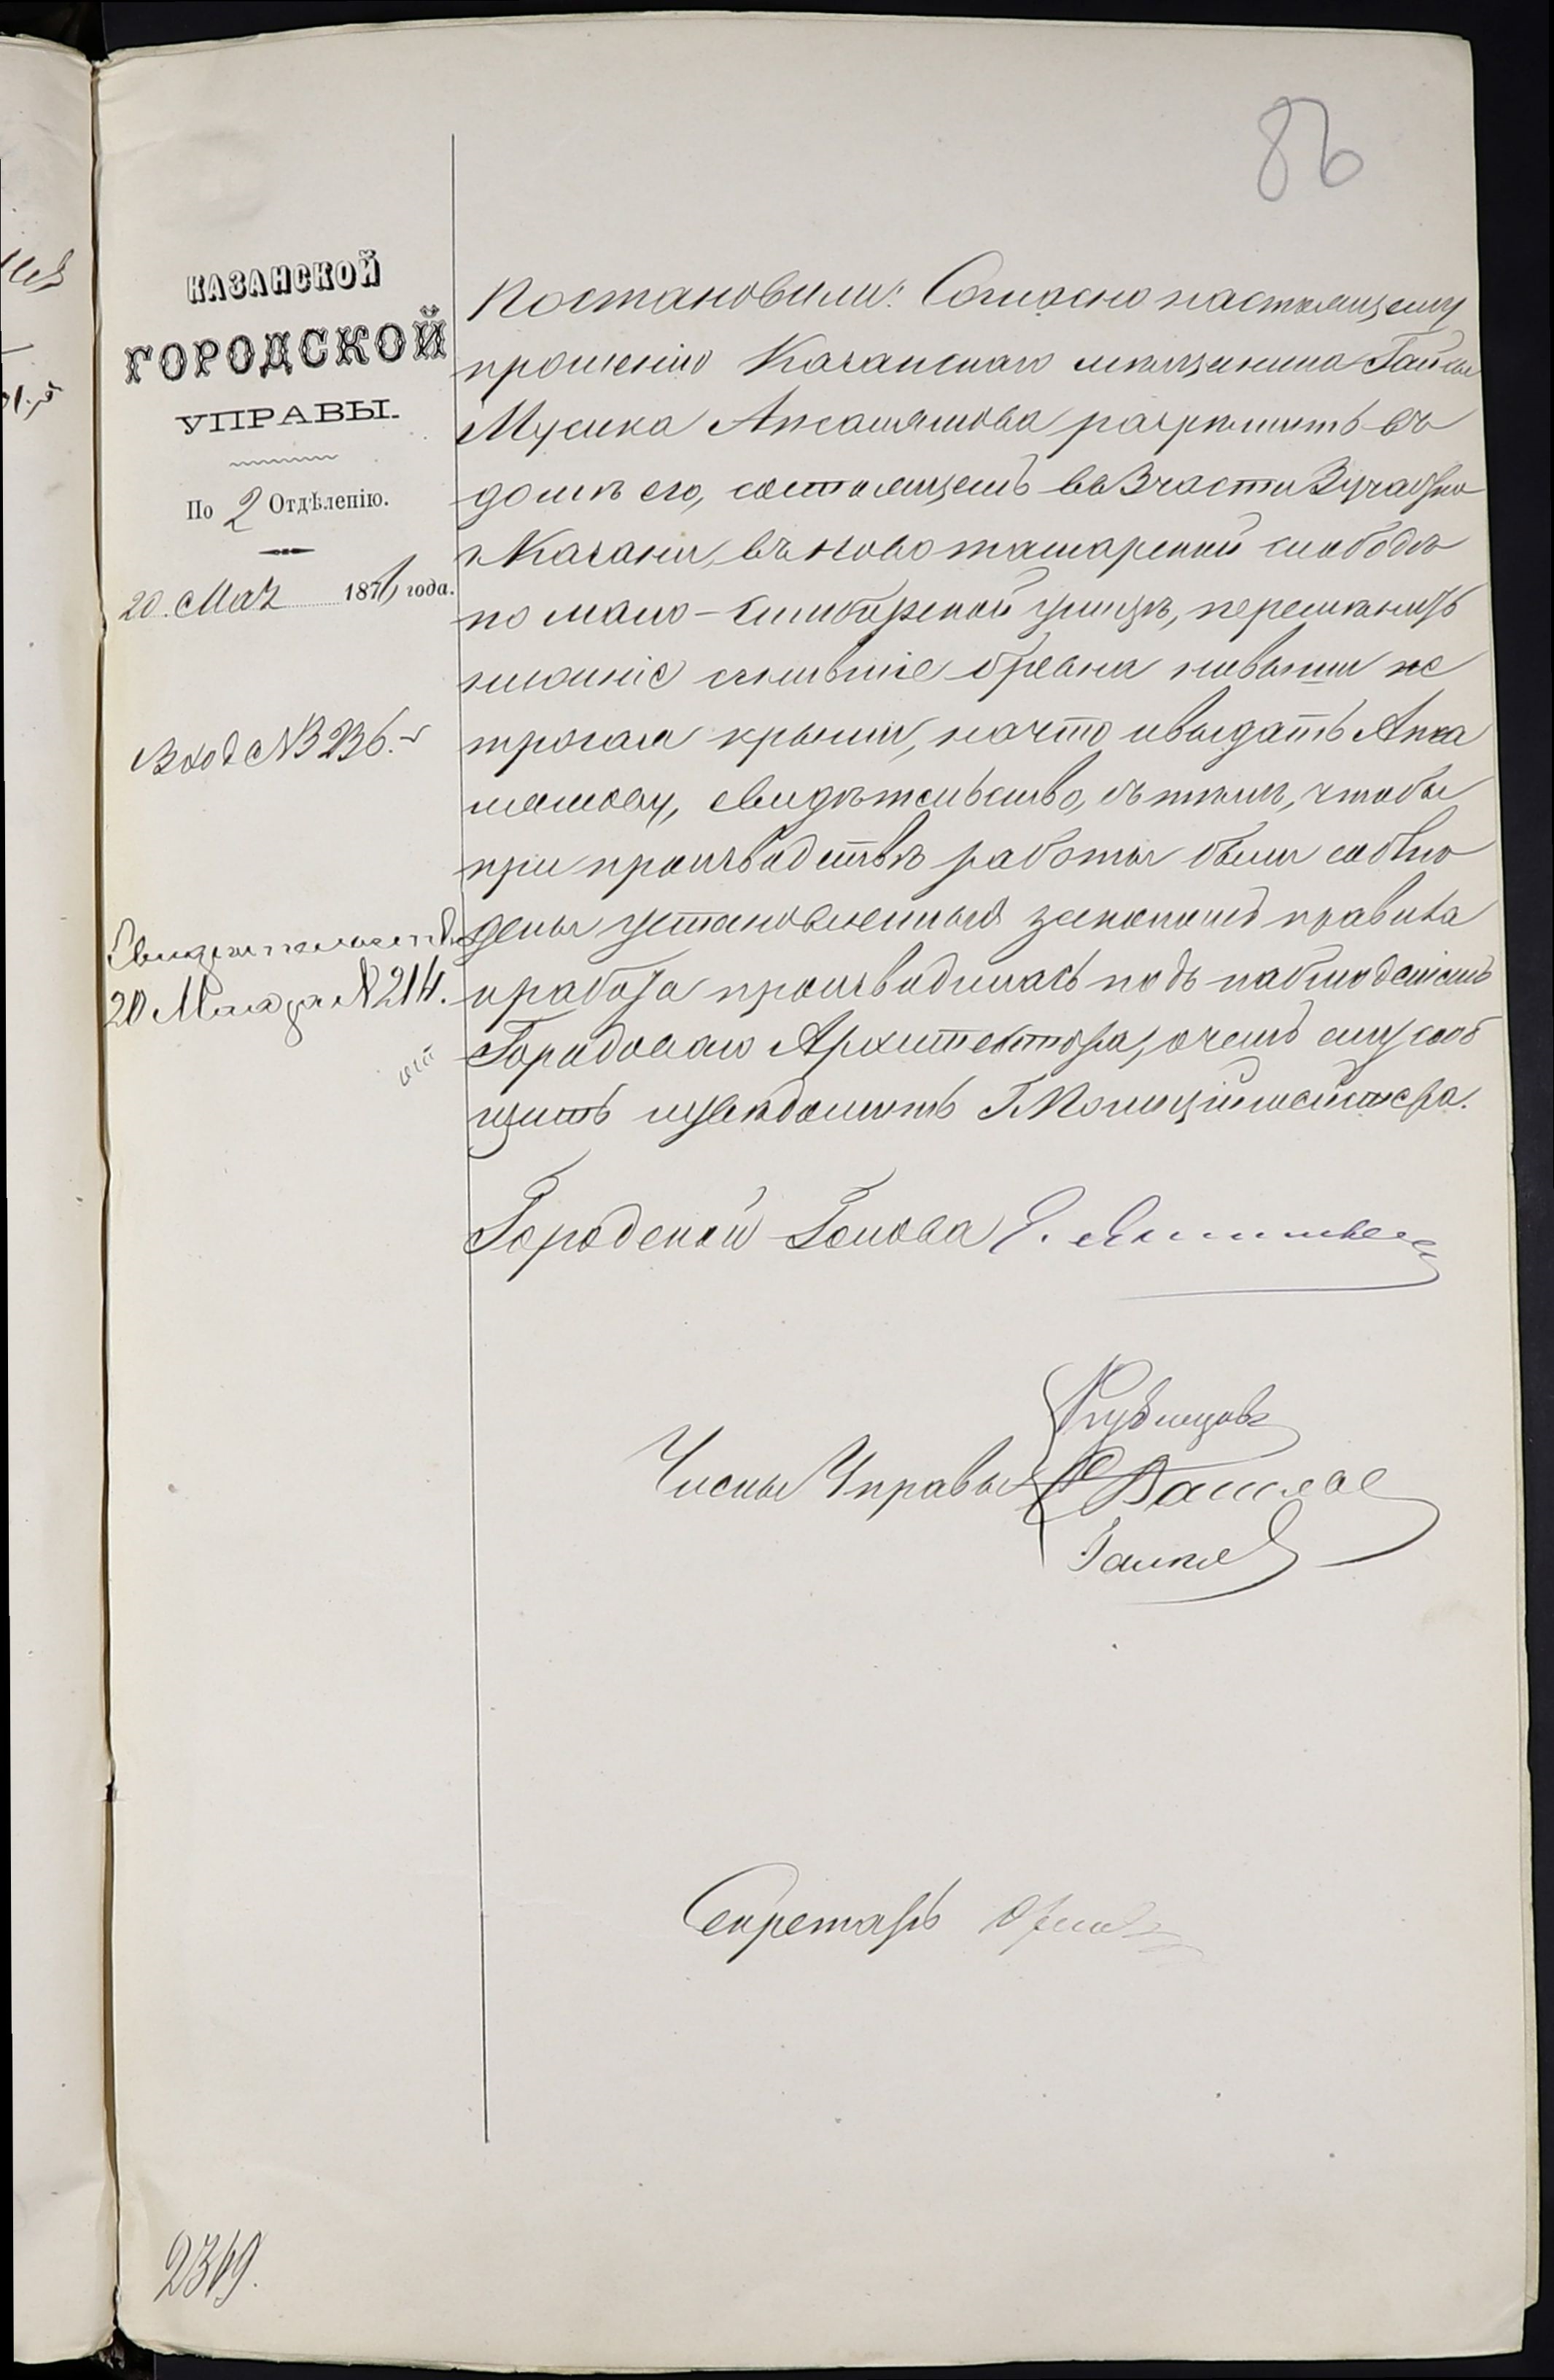 86
КАЗАНСКОЙ
ГОРОДСКОЙ
УПРАВЫ.
По 2 Отдѣленію.
20 Мая 1876 года.
Вход № 3236.
Свидѣтельство
20 Мая за № 214.
Постановили: Согласно настоящему
прошенію Казанскаго мѣщанина
Мусина Апсалямова разрѣшить въ
домѣ его, состоящемъ въ 3 части 3 участка
г. Казани, въ ново татарской слободѣ
по мало-Симбирской улицѣ, перемѣнить
нижніе сгнившіе бревна новыми не
трогая крыши, на что и выдать Апса
лямову, свидѣтельство, съ тѣмъ, чтобы
при производствѣ работы были соблю
дены установленныя закономъ правила
и работа производилась подъ наблюденіемъ
Городоваго Архитектора, о чемъ ему сооб
щить и увѣдомить Г. Полиціймейстера.
Городской Голова
Члены Управы
Кузнецовъ
Секретарь
2369.